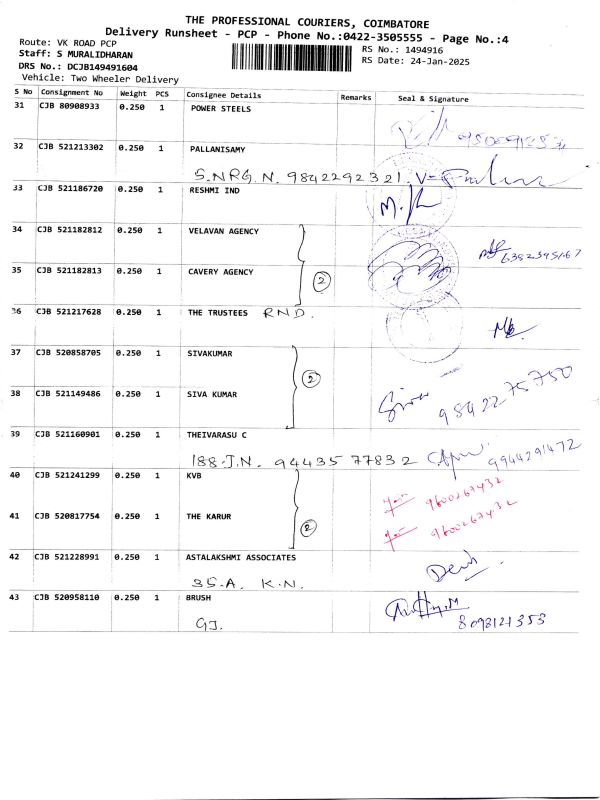 THE PROFESSIONAL COURIERS, COIMBATORE
Delivery Runsheet - PCP - Phone No.:0422-3505555 - Page No.:4
Route: VK ROAD PCP
Staff: S MURALIDHARAN
DRS No.: DCJB149491604
Vehicle: Two Wheeler Delivery
RS No.: 1494916
RS Date: 24-Jan-2025
S No Consignment No Weight PCS Consignee Details Remarks Seal & Signature
31 CJB 80908933 0.250 1 POWER STEELS
32 CJB 521213302 0.250 1 PALLANISAMY
S.NRG.N. 9842292321
33 CJB 521186720 0.250 1 RESHMI IND
34 CJB 521182812 0.250 1 VELAVAN AGENCY
6382395167
35 CJB 521182813 0.250 1 CAVERY AGENCY
2
36 CJB 521217628 0.250 1 THE TRUSTEES RND.
37 CJB 520858705 0.250 1 SIVAKUMAR
2
38 CJB 521149486 0.250 1 SIVA KUMAR
Siva 9842275750
39 CJB 521160901 0.250 1 THEIVARASU C
188-J.N. 94435 77832 9944291472
40 CJB 521241299 0.250 1 KVB
9600267432
41 CJB 520817754 0.250 1 THE KARUR
2 9600267432
42 CJB 521228991 0.250 1 ASTALAKSHMI ASSOCIATES
35-A. K.N.
43 CJB 520958110 0.250 1 BRUSH
GJ. 8098121353